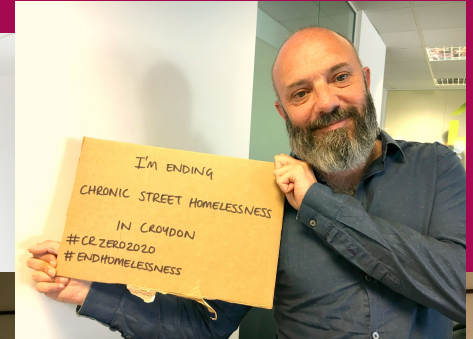 I'M ENDING
CHRONIC STREET HOMELESSNESS
IN CROYDON
#CRZERO2020
#ENDHOMELESSNESS